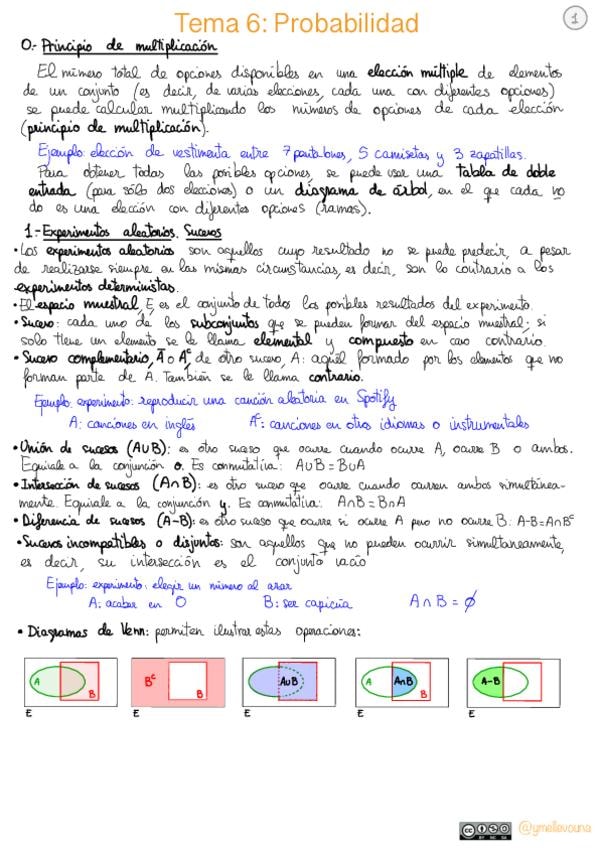 Tema 6: Probabilidad
1
0.- Principio de multiplicación
El número total de opciones disponibles en una elección múltiple de elementos
de un conjunto (es decir, de varias elecciones, cada una con diferentes opciones)
se puede calcular multiplicando los números de opciones de cada elección
(principio de multiplicación).
Ejemplo: elección de vestimenta entre 7 pantalones, 5 camisetas y 3 zapatillas.
Para obtener todas las posibles opciones, se puede usar una tabla de doble
entrada (para sólo dos elecciones) o un diagrama de árbol, en el que cada no
do es una elección con diferentes opciones (ramas).
1.- Experimentos aleatorios. Sucesos
• Los experimentos aleatorios son aquellos cuyo resultado no se puede predecir, a pesar
de realizarse siempre en las mismas circunstancias, es decir, son lo contrario a los
experimentos deterministas.
• El espacio muestral, E, es el conjunto de todos los posibles resultados del experimento.
• Suceso: cada uno de los subconjuntos que se pueden formar del espacio muestral; si
solo tiene un elemento se le llama elemental y compuesto en caso contrario.
• Suceso complementario, Ā o Aᶜ de otro suceso, A: aquél formado por los elementos que no
forman parte de A. También se le llama contrario.
Ejemplo: experimento: reproducir una canción aleatoria en Spotify
A: canciones en inglés Aᶜ: canciones en otros idiomas o instrumentales
• Unión de sucesos (A∪B): es otro suceso que ocurre cuando ocurre A, ocurre B o ambos.
Equivale a la conjunción o. Es conmutativa: A∪B = B∪A
• Intersección de sucesos (A∩B): es otro suceso que ocurre cuando ocurren ambos simultánea-
mente. Equivale a la conjunción y. Es conmutativa: A∩B = B∩A
• Diferencia de sucesos (A-B): es otro suceso que ocurre si ocurre A pero no ocurre B: A-B=A∩Bᶜ
• Sucesos incompatibles o disjuntos: son aquellos que no pueden ocurrir simultáneamente,
es decir, su intersección es el conjunto vacío
Ejemplo: experimento: elegir un número al azar
A: acabar en 0 B: ser capicúa A∩B = ∅
• Diagramas de Venn: permiten ilustrar estas operaciones:
A B Bᶜ B A∪B A A∩B B A-B
E E E E E
cc BY NC SA @ymellevouna